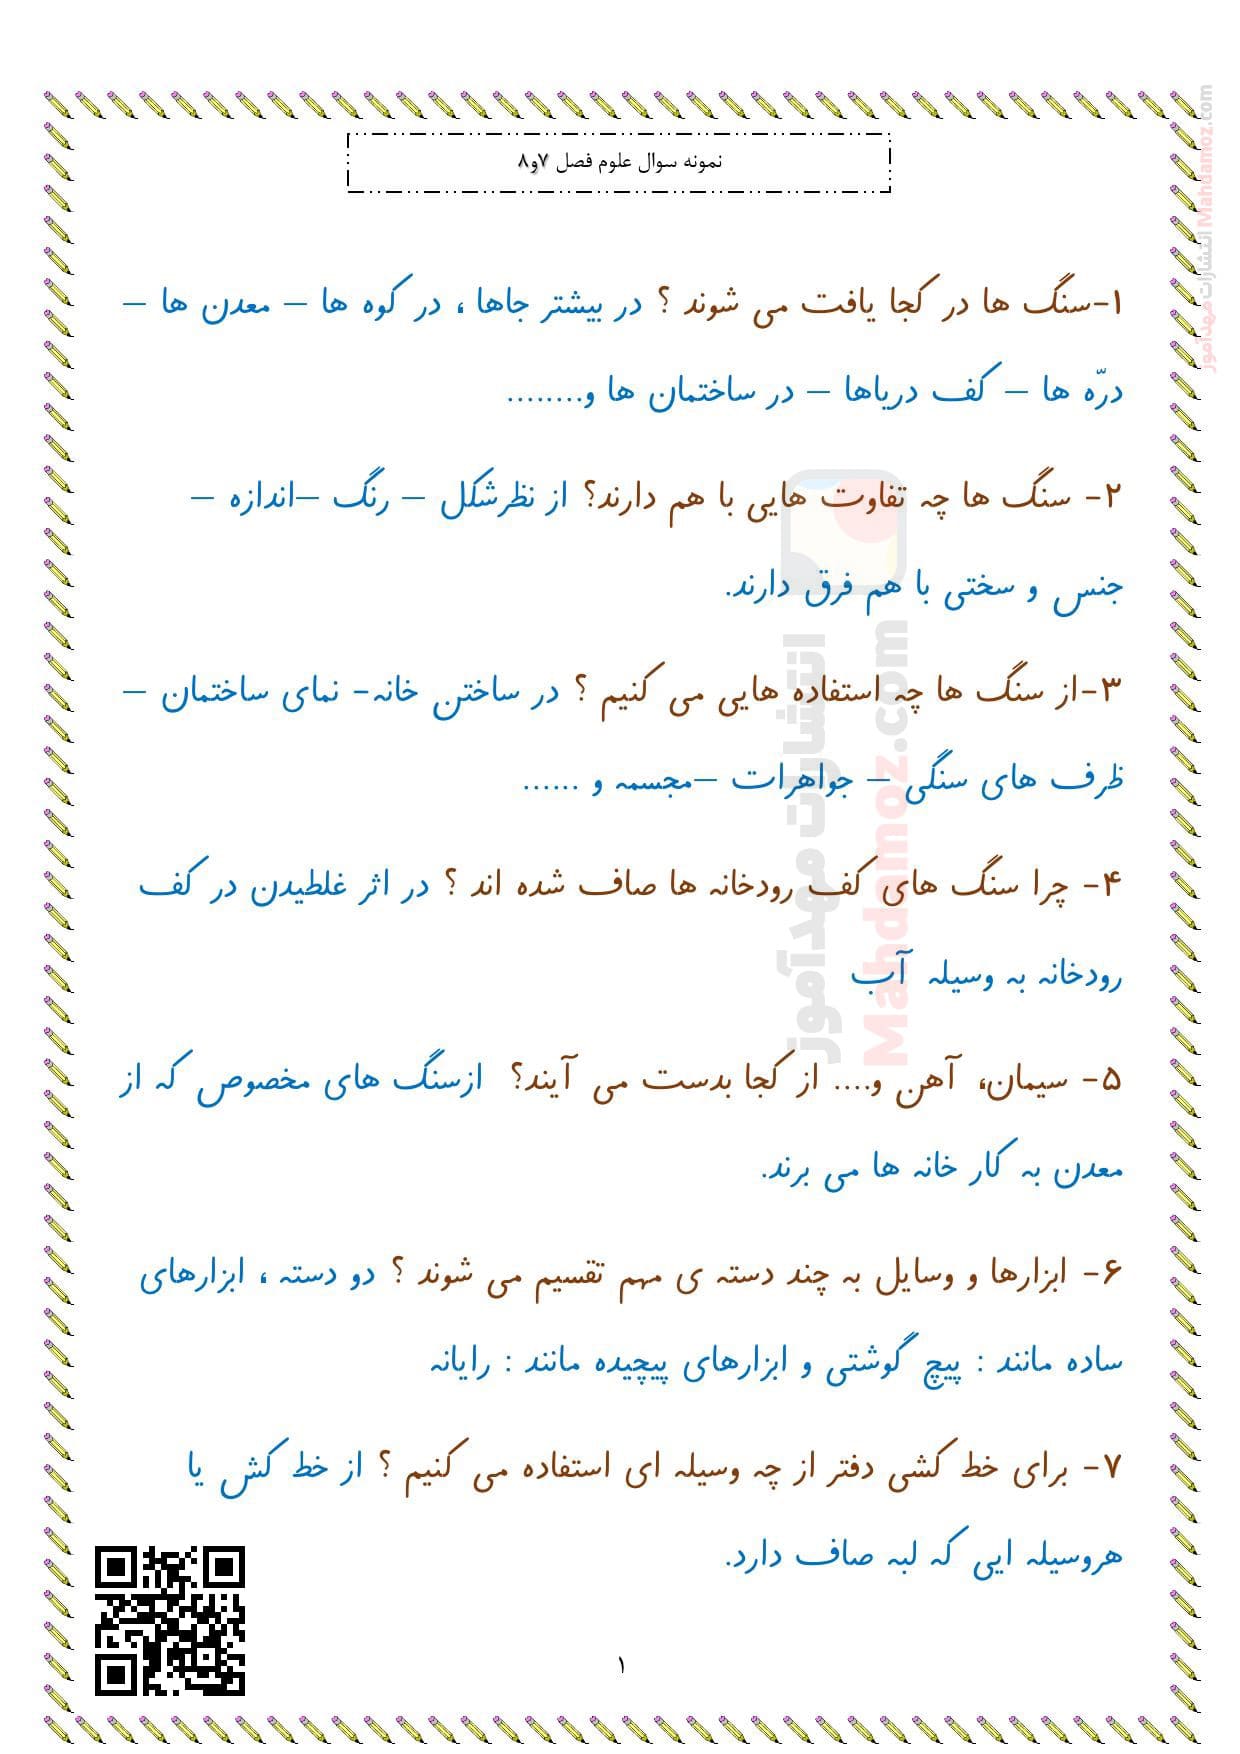 نمونه سوال علوم فصل ۷و۸
۱-سنگ ها در کجا یافت می شوند ؟ در بیشتر جاها ، در کوه ها – معدن ها –
درّه ها – کف دریاها – در ساختمان ها و........
۲- سنگ ها چه تفاوت هایی با هم دارند؟ از نظرشکل – رنگ –اندازه –
جنس و سختی با هم فرق دارند.
۳-از سنگ ها چه استفاده هایی می کنیم ؟ در ساختن خانه- نمای ساختمان –
ظرف های سنگی – جواهرات –مجسمه و ......
۴- چرا سنگ های کف رودخانه ها صاف شده اند ؟ در اثر غلطیدن در کف
رودخانه به وسیله آب
۵- سیمان، آهن و.... از کجا بدست می آیند؟ ازسنگ های مخصوص که از
معدن به کار خانه ها می برند.
۶- ابزارها و وسایل به چند دسته ی مهم تقسیم می شوند ؟ دو دسته ، ابزارهای
ساده مانند : پیچ گوشتی و ابزارهای پیچیده مانند : رایانه
۷- برای خط کشی دفتر از چه وسیله ای استفاده می کنیم ؟ از خط کش یا
هروسیله ایی که لبه صاف دارد.
۱
انتشارات مهدآموز
Mahdamoz.com
انتشارات مهدآموز Mahdamoz.com